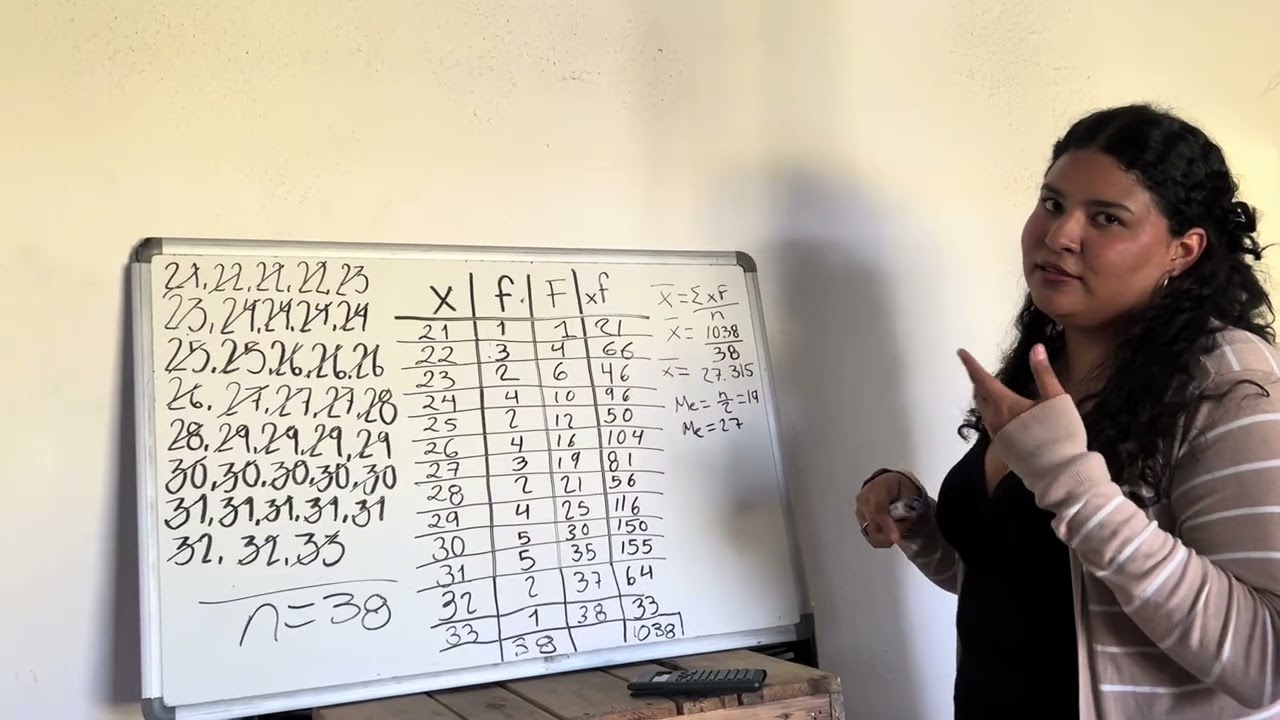 21, 22, 22, 22, 23
23, 24, 24, 24, 24
25, 25, 26, 26, 26
26, 27, 27, 27, 28
28, 29, 29, 29, 29
30, 30, 30, 30, 30
31, 31, 31, 31, 31
32, 32, 33
n=38
x f. F xf
21 1 1 21
22 3 4 66
23 2 6 46
24 4 10 96
25 2 12 50
26 4 16 104
27 3 19 81
28 2 21 56
29 4 25 116
30 5 30 150
31 5 35 155
32 2 37 64
33 1 38 33
38 1038
x̄ = Σxf/n
x̄ = 1038/38
x̄ = 27.315
Me = n/2 = 19
Me = 27